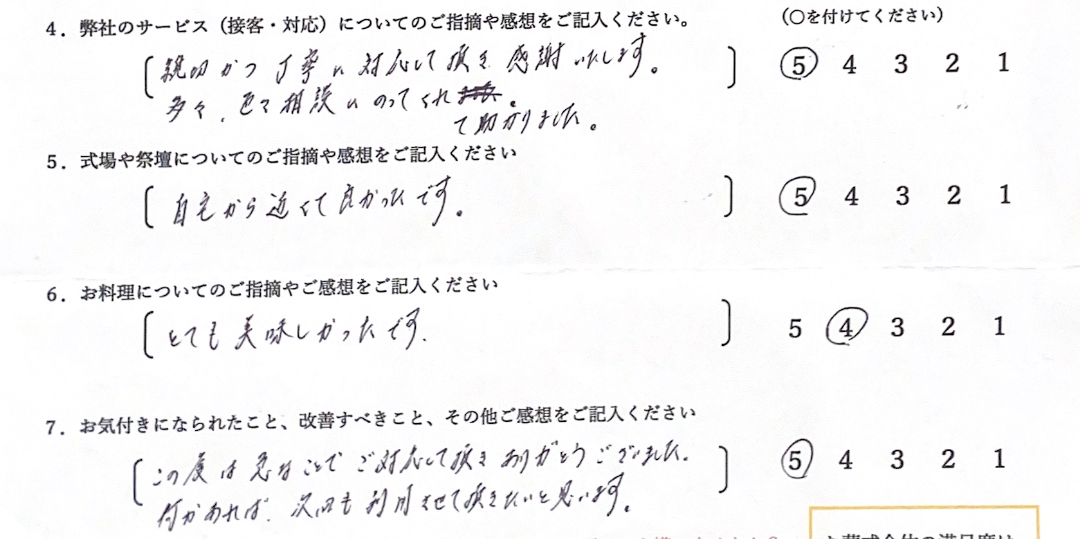 4．弊社のサービス（接客・対応）についてのご指摘や感想をご記入ください。
（○を付けてください）
親切かつ丁寧に対応して頂き感謝いたします。
5 4 3 2 1
多々、色々相談にのってくれ
て助かりました。
5．式場や祭壇についてのご指摘や感想をご記入ください
自宅から近くて良かったです。
5 4 3 2 1
6．お料理についてのご指摘やご感想をご記入ください
とても美味しかったです.
5 4 3 2 1
7．お気付きになられたこと、改善すべきこと、その他ご感想をご記入ください
この度は急なことでご対応して頂きありがとうございました.
5 4 3 2 1
何かあれば、次回も利用させて頂きたいと思います。